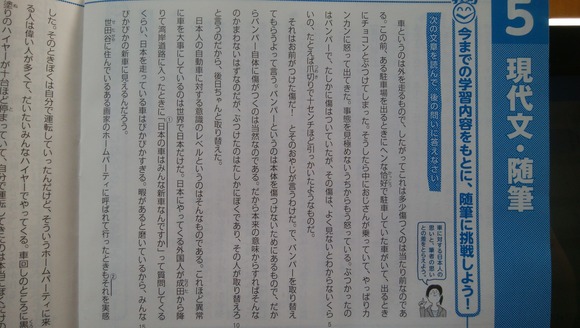 5 現代文・随筆
今までの学習内容をもとに、随筆に挑戦しよう！
車に対する日本人の
思いと、筆者の思い
との差をとらえよう。
次の文章を読んで、後の問いに答えなさい。
車というのは外を走るもので、したがってこれは多少傷つくのは当たり前なのであ
る。この前、ある駐車場を出るときにヘンな恰好で駐車していた車がいて、出るとき
にチョコンとぶつけてしまった。そうしたら中におじさんが乗っていて、やっぱりカ
ンカンに怒って出てきた。事態を見極めないうちからもう怒っている。ぶつかったの
はバンパーで、たしかに傷はついていたが、その傷は、よく見ないとわからないくら
5
いの、たとえば爪切りで十センチほど引っかいたようなものだ。
それはお前がつけた傷だ！ とそのおやじが言うわけだ。で、バンパーを取り替え
てもらうよって。バンパーというのは本体を傷つけないためにあるもので、だか
らバンパー自体に傷がつくのは当然なのである。だから本来の意味からすればそんな
のかまわないはずなのだが、ぶつけたのはたしかにぼくであり、その人が取り替えろ
10
と言うのだから、後日ちゃんと取り替えた。
日本人の自動車に対する意識のレベルというのはそんなものである。これほど異常
に車を大事にしているのは世界で日本だけだ。日本にやってくる外国人が成田から降
りて湾岸道路に入ったときに「日本の車はみんな新車なんですか」って質問してくる
くらい、日本を走っている車はぴかぴかすぎる。暇があると磨いているから、みんな
15
ぴかぴかの新車に見えるんだろう。
世田谷に住んでいるある画家のホームパーティに呼ばれて行ったときもそれを実感
した。そのときぼくは自分で運転していったんだけど、そういうホームパーティに来
る人は偉い人が多くて、だいたいみんなハイヤーでやってくる。車回しのところに黒
塗りのハイヤーが十台ほど停まっていて、